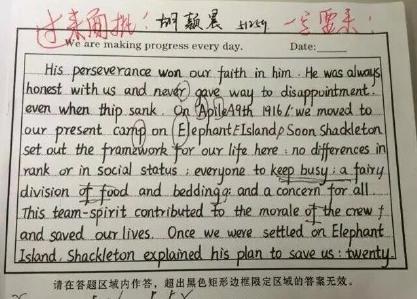 过来面批! 胡颖晨 51259 一定要来!
We are making progress every day. Date:
His perseverance won our faith in him. He was always
honest with us and never gave way to disappointment
even when thip sank. On Aplile 19th 1916, we moved to
our present camp on Elephant Island, Soon Shackleton
set out the framework for our life here: no differences in
rank or in social status; everyone to keep busy; a fairy
division of food and bedding; and a concern for all.
This team-spirit contributed to the morale of the crew
and saved our lives. Once we were settled on Elephant
Island, Shackleton explained his plan to save us: twenty
请在答题区域内作答，超出黑色矩形边框限定区域的答案无效。